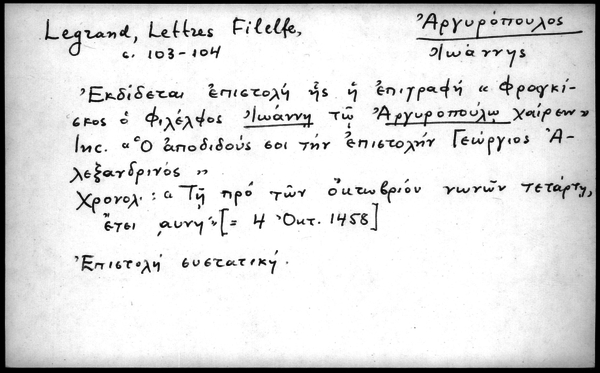 Legrand, Lettres Filelfe,
Ἀργυρόπουλος
σ. 103-104
Ἰωάννης
Ἐκδίδεται ἐπιστολή ἧς ἡ ἐπιγραφή « Φραγκί-
σκος ὁ Φιλέλφος Ἰωάννῃ τῷ Ἀργυροπούλῳ χαίρειν»
Inc. «Ὁ ἀποδιδούς σοι τήν ἐπιστολήν Γεώργιος Ἀ-
λεξανδρινός »
Χρονολ.: « Τῇ πρό τῶν ὀκτωβρίου νωνῶν τετάρτῃ,
ἔτει ͵αυνη´»[= 4 Ὀκτ. 1458]
Ἐπιστολή συστατική.